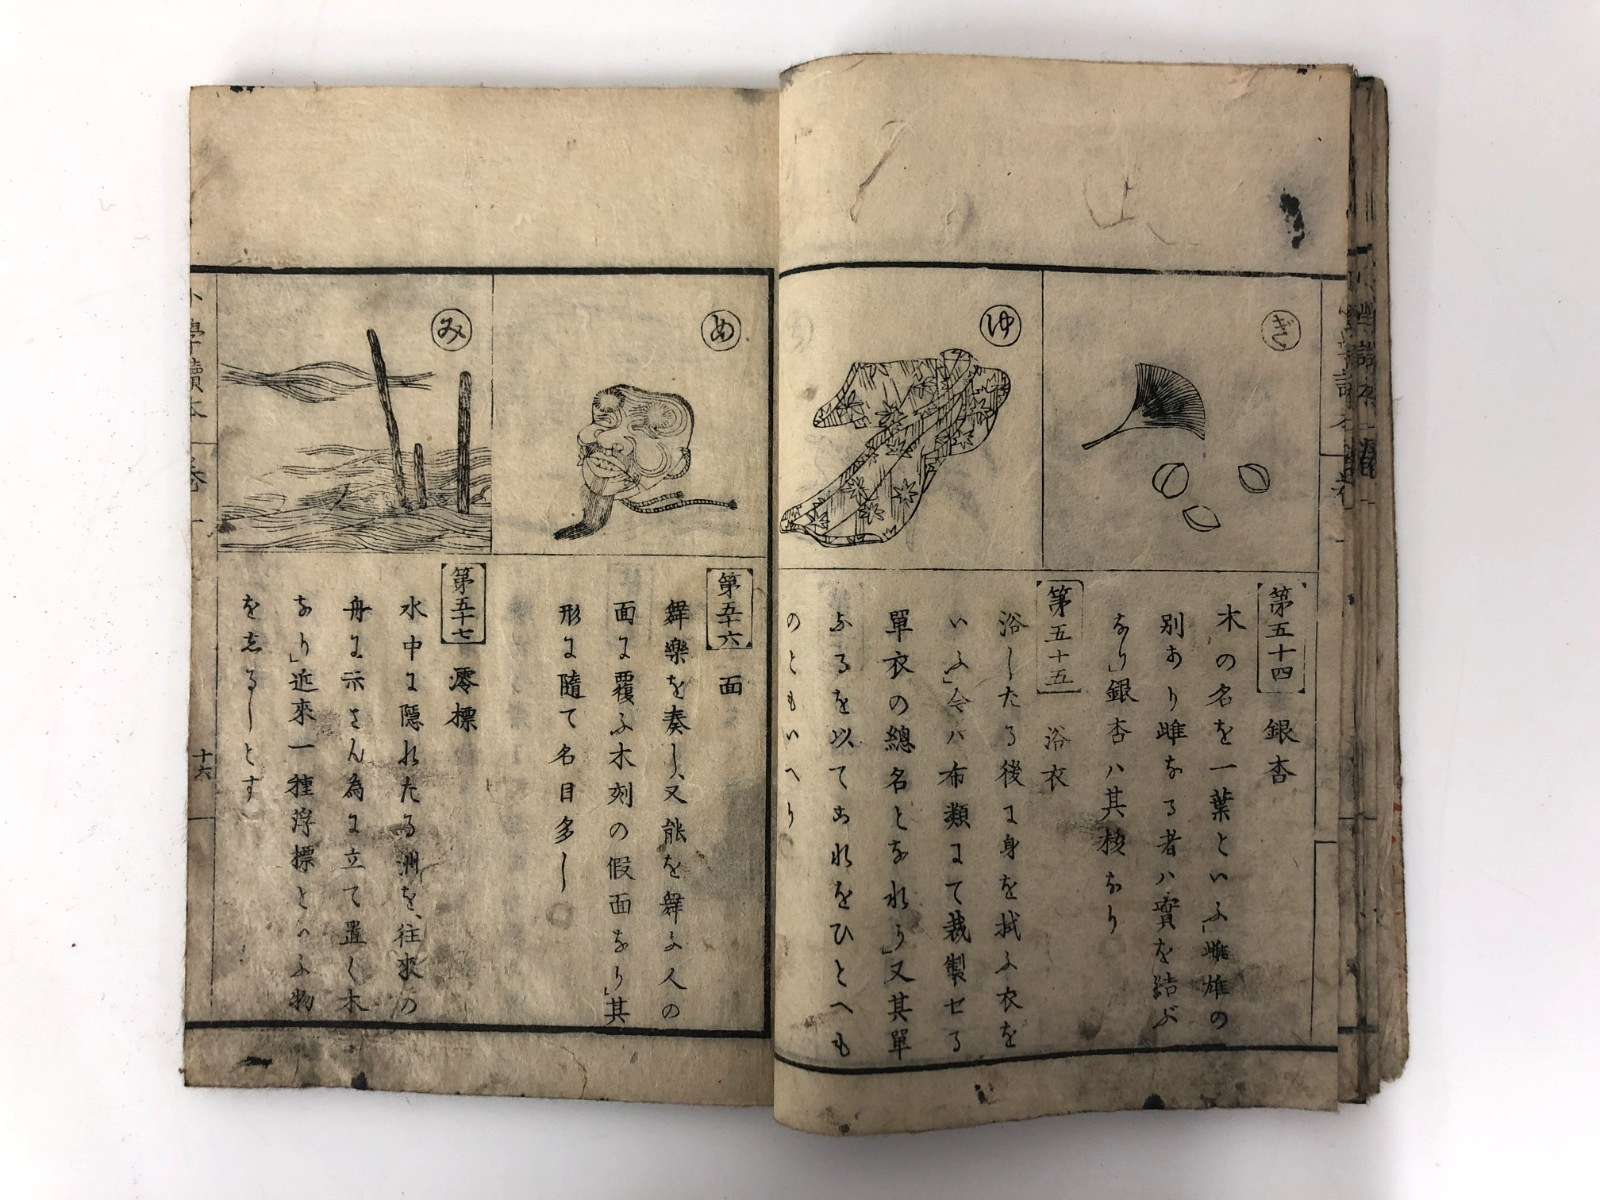 ぎ
第五十四 銀杏
木の名を一葉といふ」雌雄の
別あり雌なる者ハ實を結ぶ
なり」銀杏ハ其核なり
ゆ
第五十五 浴衣
浴したる後に身を拭ふ衣を
いふ」今ハ布類にて裁製せる
單衣の總名となれり」又其單
なるを以てこれをひとへも
のともいへり
め
第五十六 面
舞樂を奏し、又能を舞ふ人の
面に覆ふ木刻の假面なり」其
形に隨て名目多し
み
第五十七 澪標
水中に隱れたる洲を、往來の
舟に示さん為に立て置く木
なり」近來一種浮標といふ物
を志るしとす
小學讀本 巻一
十六